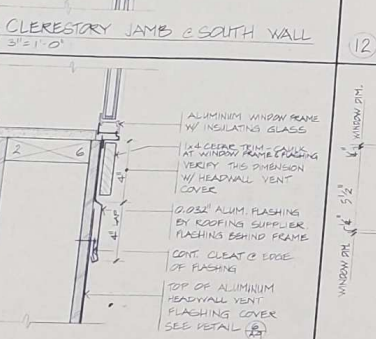 CLERESTORY JAMB @ SOUTH WALL
3" = 1'-0"
12
ALUMINUM WINDOW FRAME
W/ INSULATING GLASS
1x4 CEDAR TRIM - CAULK
AT WINDOW FRAME & FLASHING
VERIFY THIS DIMENSION
W/ HEADWALL VENT
COVER
0.032" ALUM. FLASHING
BY ROOFING SUPPLIER.
FLASHING BEHIND FRAME
CONT. CLEAT @ EDGE
OF FLASHING
TOP OF ALUMINUM
HEADWALL VENT
FLASHING COVER
SEE DETAIL
2 6
4"
4"
WINDOW DIM.
5 1/2"
WINDOW DIM.